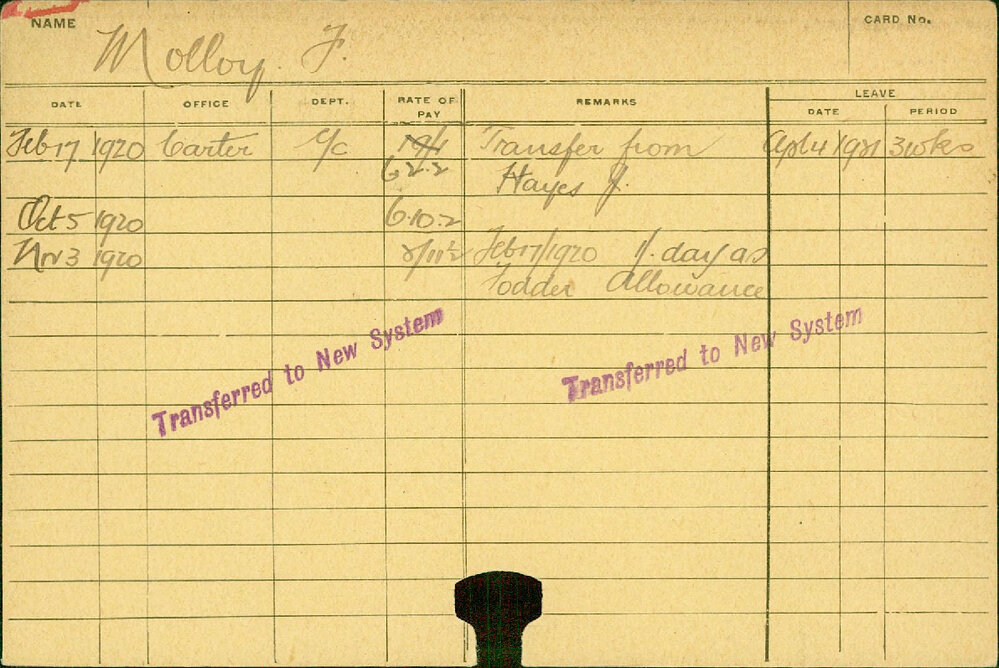 NAME
CARD No.
Molloy. F.
DATE OFFICE DEPT. RATE OF PAY REMARKS LEAVE
DATE PERIOD
Feb 17 1920 Carter G/C Transfer from Apl 4 1921 3 wks
6.2.2 Hayes J.
Oct 5 1920 6.10.2
Nov 3 1920 Feb 17/1920 1/. day as
Fodder Allowance
Transferred to New System
Transferred to New System